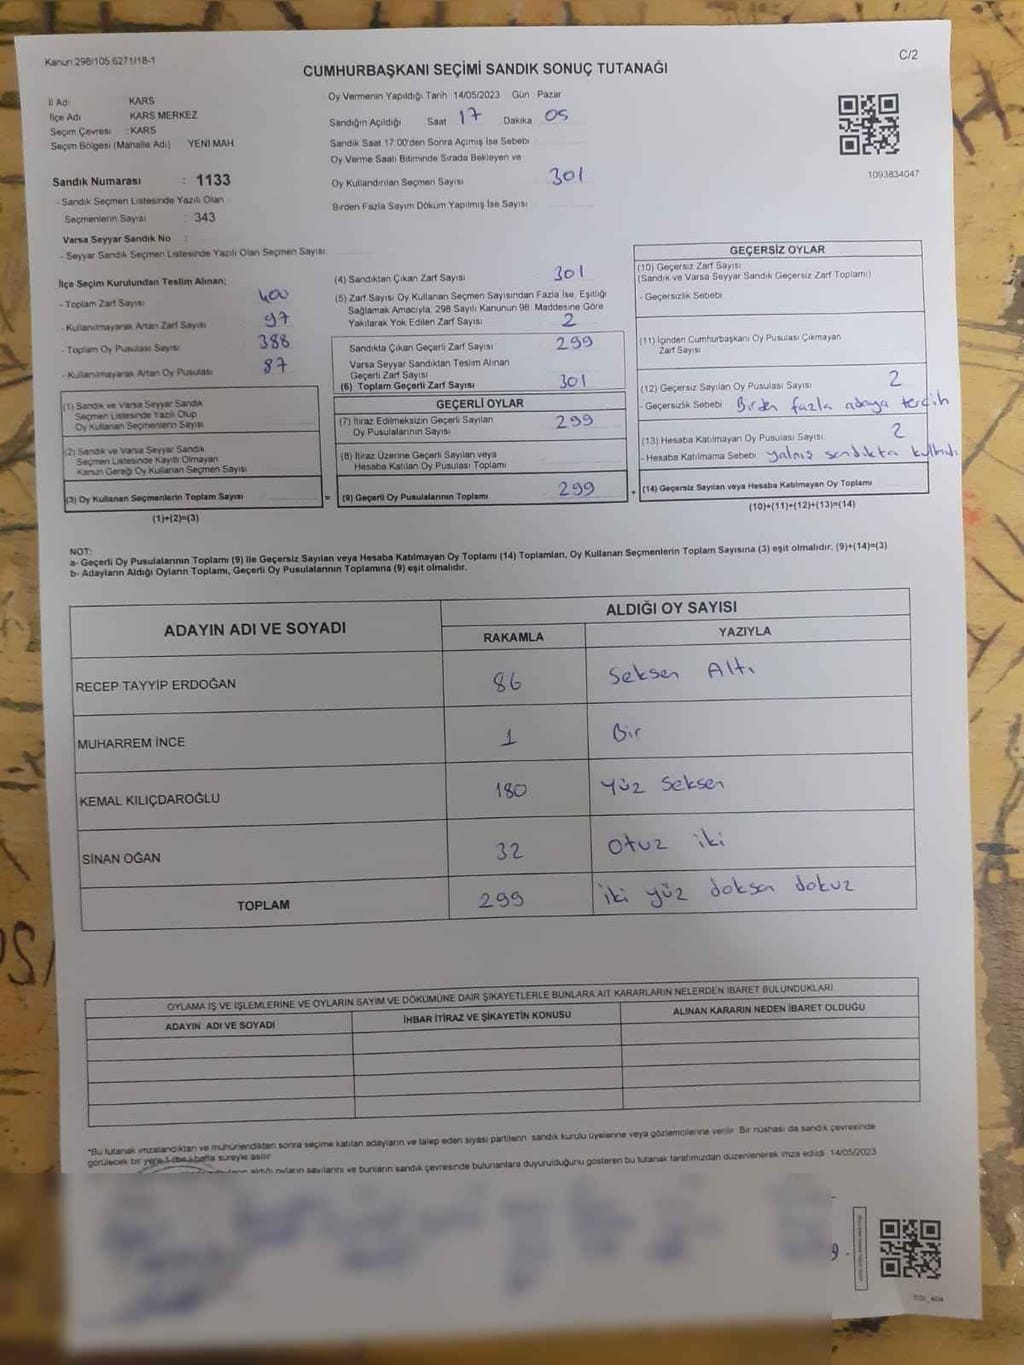 Kanun 298/105 6271/18-1
C/2
CUMHURBAŞKANI SEÇİMİ SANDIK SONUÇ TUTANAĞI
İl Adı KARS
İlçe Adı KARS MERKEZ
Seçim Çevresi : KARS
Seçim Bölgesi (Mahalle Adı) YENİ MAH
Sandık Numarası : 1133
- Sandık Seçmen Listesinde Yazılı Olan
Seçmenlerin Sayısı : 343
Varsa Seyyar Sandık No :
- Seyyar Sandık Seçmen Listesinde Yazılı Olan Seçmen Sayısı
Oy Vermenin Yapıldığı Tarih 14/05/2023 Gün Pazar
Sandığın Açıldığı Saat 17 Dakika 05
Sandık Saat 17:00'den Sonra Açımış İse Sebebi
Oy Verme Saati Bitiminde Sırada Bekleyen ve
Oy Kullandırılan Seçmen Sayısı 301
Birden Fazla Sayım Döküm Yapılmış İse Sayısı
1093834047
İlçe Seçim Kurulundan Teslim Alınan;
- Toplam Zarf Sayısı 400
- Kullanılmayarak Artan Zarf Sayısı 97
- Toplam Oy Pusulası Sayısı 388
- Kullanılmayarak Artan Oy Pusulası 87
(1) Sandık ve Varsa Seyyar Sandık
Seçmen Listesinde Yazılı Olup
Oy Kullanan Seçmenlerin Sayısı
(2) Sandık ve Varsa Seyyar Sandık
Seçmen Listesinde Kayıtlı Olmayan
Kanun Gereği Oy Kullanan Seçmen Sayısı
(3) Oy Kullanan Seçmenlerin Toplam Sayısı
(1)+(2)=(3)
(4) Sandıktan Çıkan Zarf Sayısı 301
(5) Zarf Sayısı Oy Kullanan Seçmen Sayısından Fazla İse, Eşitliği
Sağlamak Amacıyla, 298 Sayılı Kanunun 98. Maddesine Göre
Yakılarak Yok Edilen Zarf Sayısı 2
Sandıkta Çıkan Geçerli Zarf Sayısı 299
Varsa Seyyar Sandıktan Teslim Alınan
Geçerli Zarf Sayısı
(6) Toplam Geçerli Zarf Sayısı 301
GEÇERLİ OYLAR
(7) İtiraz Edilmeksizin Geçerli Sayılan
Oy Pusulalarının Sayısı 299
(8) İtiraz Üzerine Geçerli Sayılan veya
Hesaba Katılan Oy Pusulası Toplamı
= (9) Geçerli Oy Pusulalarının Toplamı 299
GEÇERSİZ OYLAR
(10) Geçersiz Zarf Sayısı
(Sandık ve Varsa Seyyar Sandık Geçersiz Zarf Toplamı)
- Geçersizlik Sebebi
(11) İçinden Cumhurbaşkanı Oy Pusulası Çıkmayan
Zarf Sayısı
(12) Geçersiz Sayılan Oy Pusulası Sayısı 2
- Geçersizlik Sebebi Birden fazla adaya tercih
(13) Hesaba Katılmayan Oy Pusulası Sayısı 2
- Hesaba Katılmama Sebebi yalnış sandıkta
+ (14) Geçersiz Sayılan veya Hesaba Katılmayan Oy Toplamı
(10)+(11)+(12)+(13)=(14)
NOT:
a- Geçerli Oy Pusulalarının Toplamı (9) ile Geçersiz Sayılan veya Hesaba Katılmayan Oy Toplamı (14) Toplamları, Oy Kullanan Seçmenlerin Toplam Sayısına (3) eşit olmalıdır. (9)+(14)=(3)
b- Adayların Aldığı Oyların Toplamı, Geçerli Oy Pusulalarının Toplamına (9) eşit olmalıdır.
ADAYIN ADI VE SOYADI
ALDIĞI OY SAYISI
RAKAMLA YAZIYLA
RECEP TAYYİP ERDOĞAN 86 Seksen Altı
MUHARREM İNCE 1 Bir
KEMAL KILIÇDAROĞLU 180 Yüz Seksen
SİNAN OĞAN 32 Otuz iki
TOPLAM 299 iki yüz doksan dokuz
OYLAMA İŞ VE İŞLEMLERİNE VE OYLARIN SAYIM VE DÖKÜMÜNE DAİR ŞİKAYETLERLE BUNLARA AİT KARARLARIN NELERDEN İBARET BULUNDUKLARI
ADAYIN ADI VE SOYADI İHBAR İTİRAZ VE ŞİKAYETİN KONUSU ALINAN KARARIN NEDEN İBARET OLDUĞU
*Bu tutanak imzalandıktan ve mühürlendikten sonra seçime katılan adayların ve talep eden siyasi partilerin sandık kurulu üyelerine veya gözlemcilerine verilir. Bir nüshası da sandık çevresinde
görülecek bir yere 1 (bir) hafta süreyle asılır.
aldığı oyların sayılarını ve bunların sandık çevresinde bulunanlara duyurulduğunu gösteren bu tutanak tarafımızdan düzenlenerek imza edildi. 14/05/2023